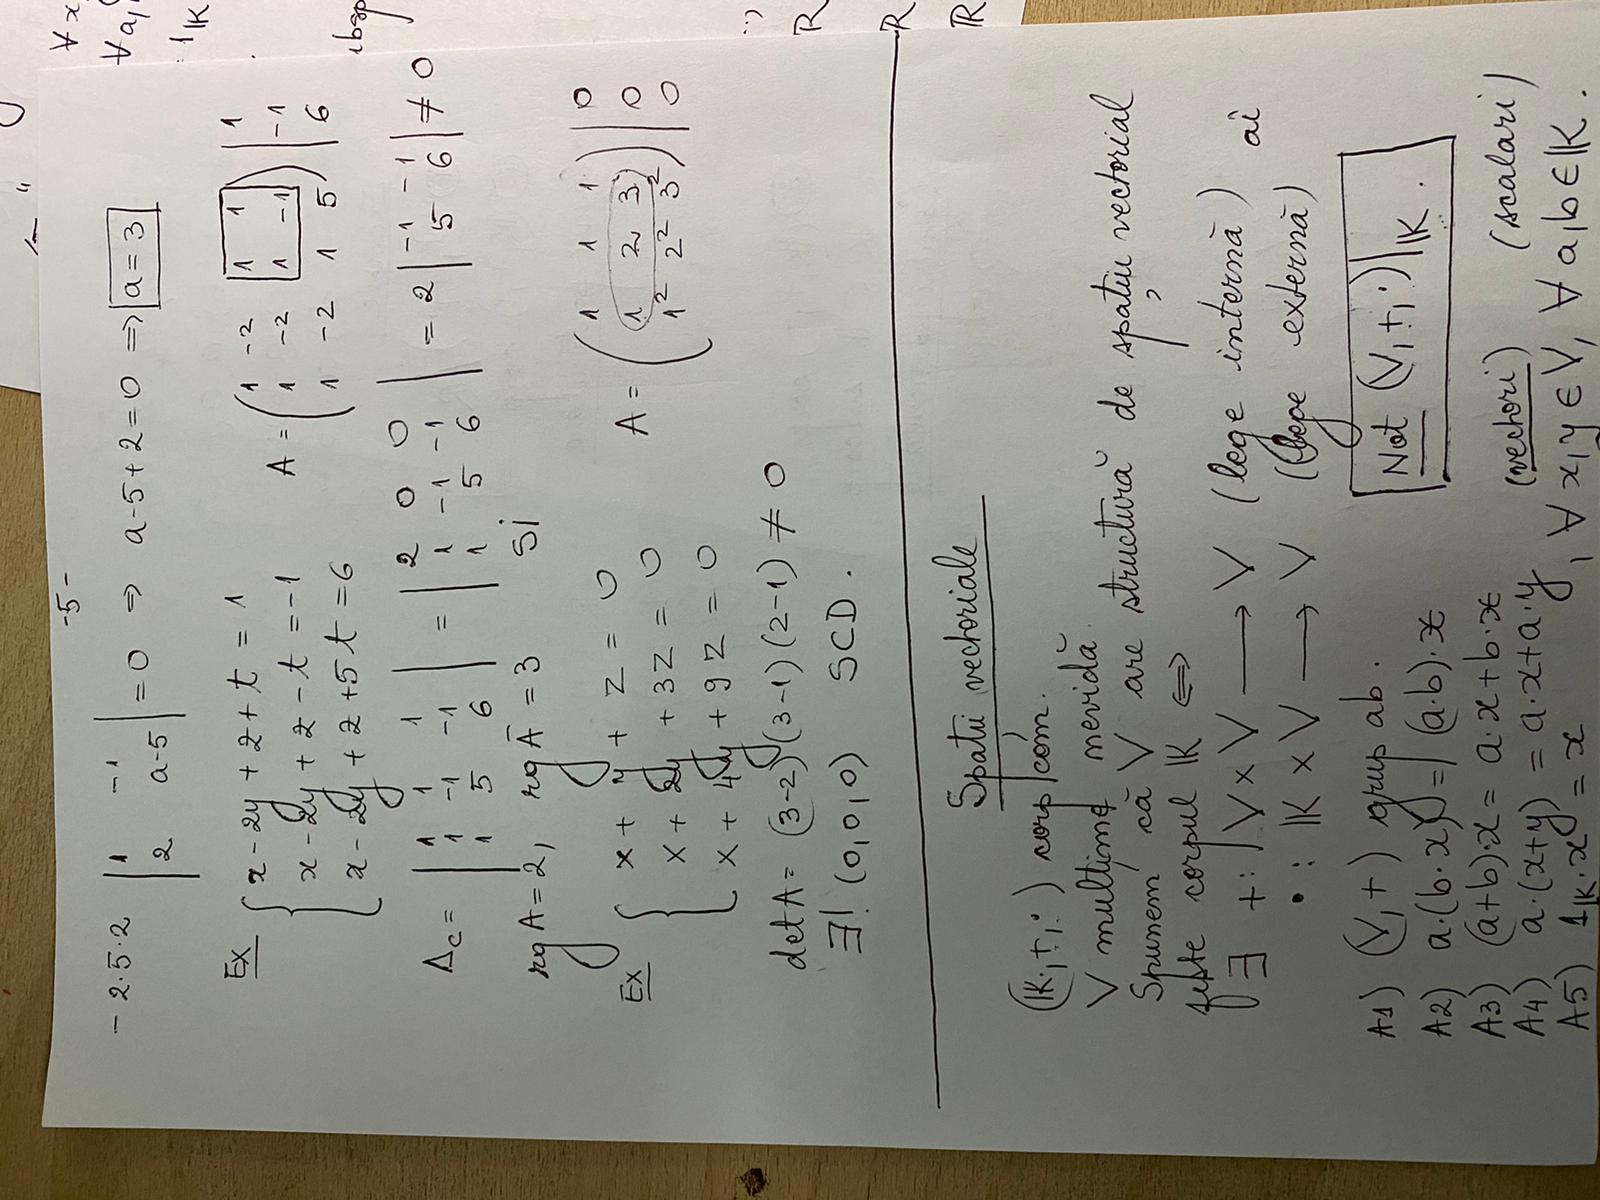 -5-
- 2·5·2 | 1 -1 ; 2 a-5 | = 0 ⇒ a-5+2=0 ⇒ a = 3
Ex { x - 2y + z + t = 1
x - 2y + z - t = -1
x - 2y + z + 5t = 6
A = ( 1 -2 1 1 | 1
1 -2 1 -1 | -1
1 -2 1 5 ) | 6
Δc = | 1 1 1 ; 1 -1 -1 ; 1 5 6 | = | 2 0 0 ; 1 -1 -1 ; 1 5 6 | = 2 | -1 -1 ; 5 6 | ≠ 0
rg A = 2, rg Ā = 3 Si
Ex { x + y + z = 0
x + 2y + 3z = 0
x + 4y + 9z = 0
A = ( 1 1 1 | 0
1 2 3 | 0
1² 2² 3² ) | 0
det A = (3-2)(3-1)(2-1) ≠ 0
∃! (0,0,0) SCD.
Spatii vectoriale
(K,+,·) corp com.
V mulțime nevidă.
Spunem că V are structură de spațiu vectorial
peste corpul K ⇔
∃ +: V × V ⟶ V (lege internă) aî
· : K × V ⟶ V (lege externă)
A1) (V,+) grup ab.
A2) a·(b·x) = (a·b)·x
A3) (a+b)·x = a·x+b·x
A4) a·(x+y) = a·x+a·y
A5) 1K·x = x , ∀ x,y ∈ V, ∀ a,b ∈ K.
(vectori) (scalari)
Not (V,+,·)|K.
∀ x
∀ a,
1K
R
R
R